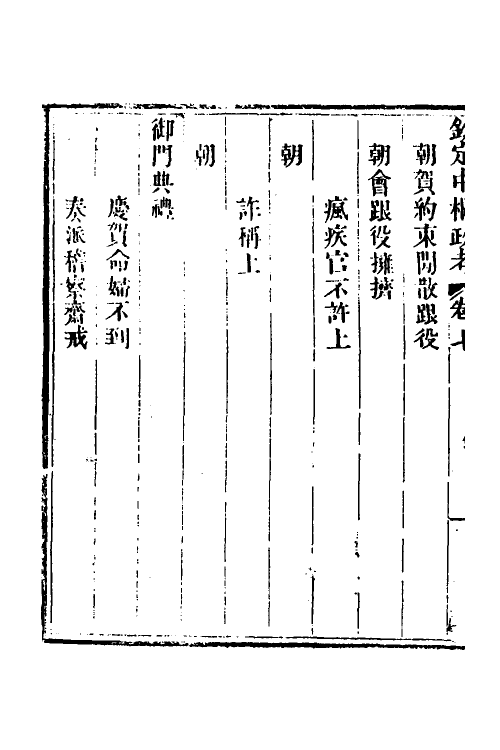 欽定中樞政考 卷七
朝賀約束閒散跟役
朝會跟役擁擠
瘋疾官不許上
朝
詐稱上
朝
御門典禮
慶賀命婦不到
奏派稽察齋戒